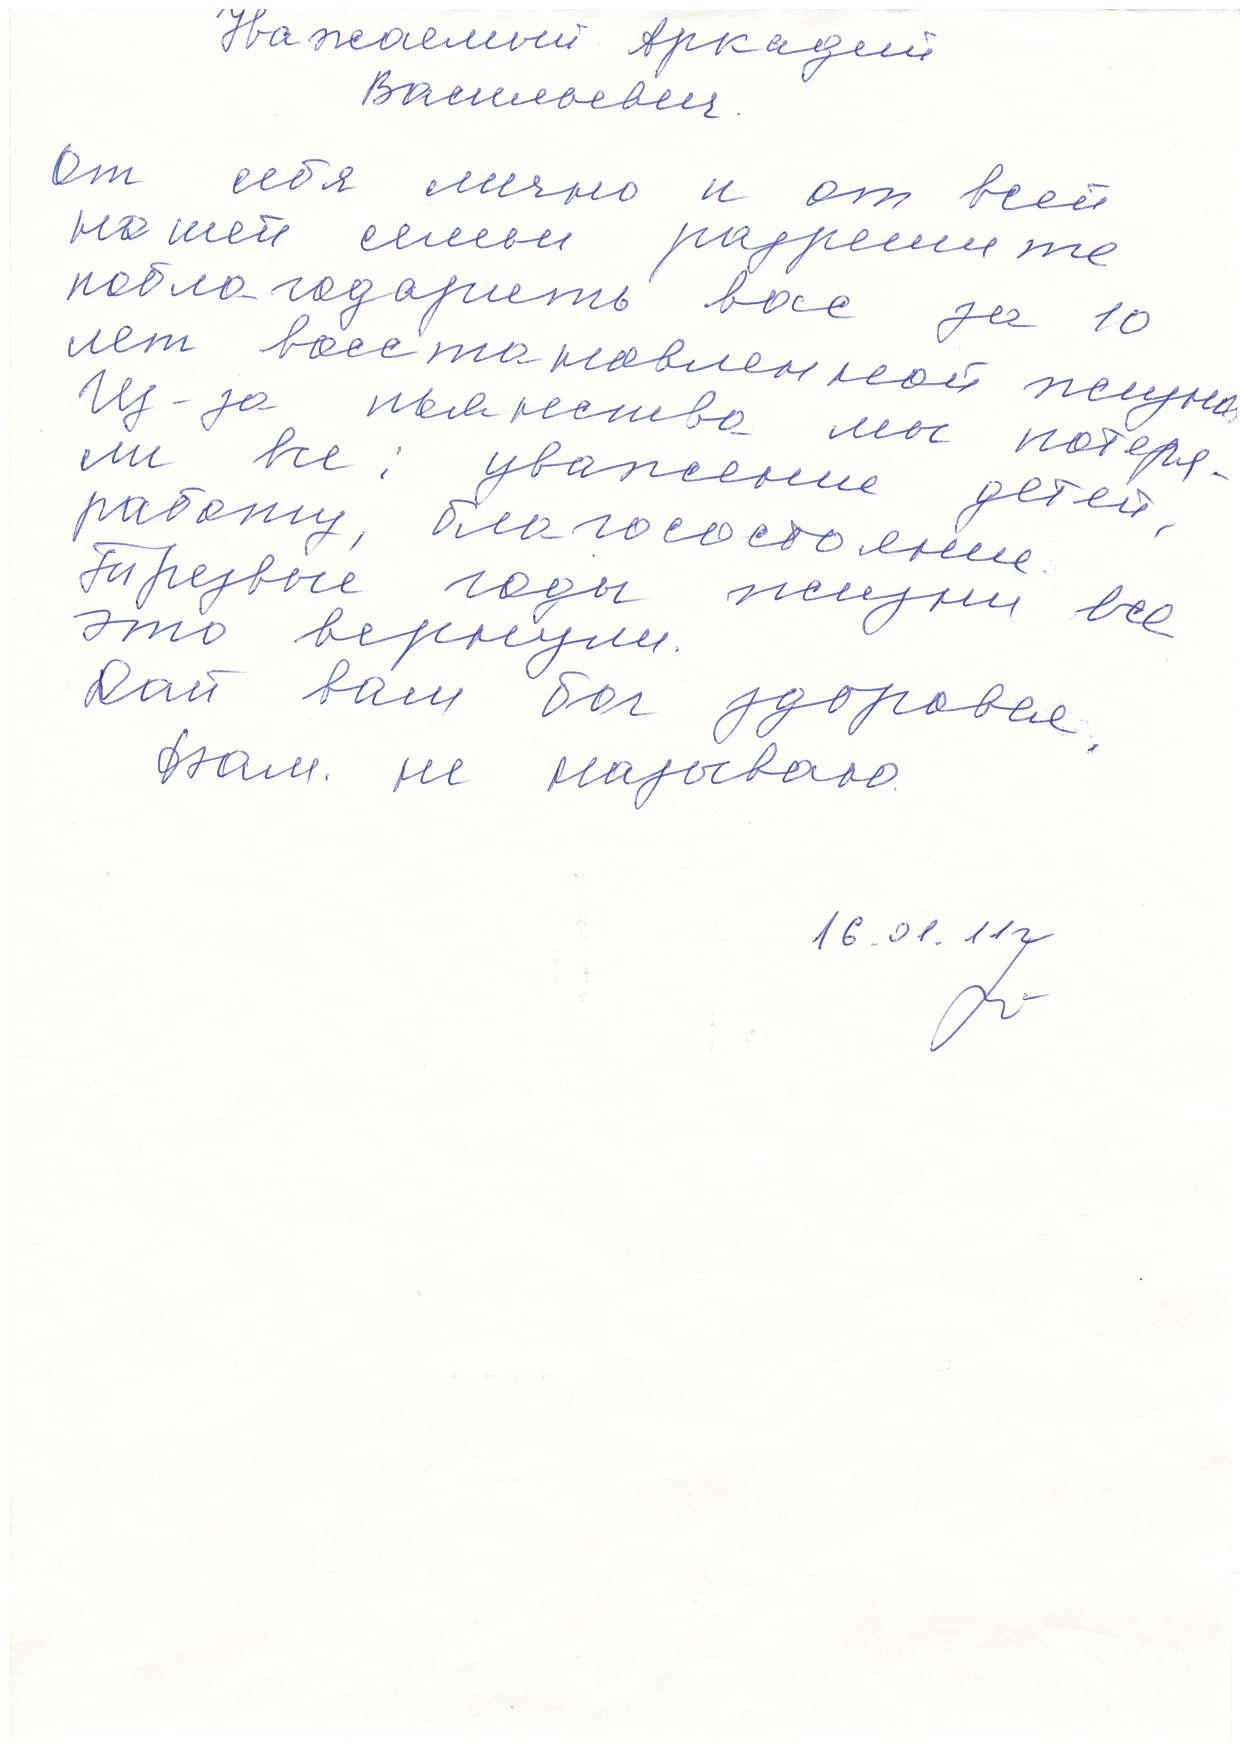 Уважаемый Аркадий
Васильевич.
От себя лично и от всей
нашей семьи разрешите
поблагодарить вас за 10
лет восстановленной жизни.
Из-за пьянства мы потеря-
ли все: уважение детей,
работу, благосостояние.
Трезвые годы жизни все
это вернули.
Дай вам бог здоровья.
Фам. не называю.
16.01.11г